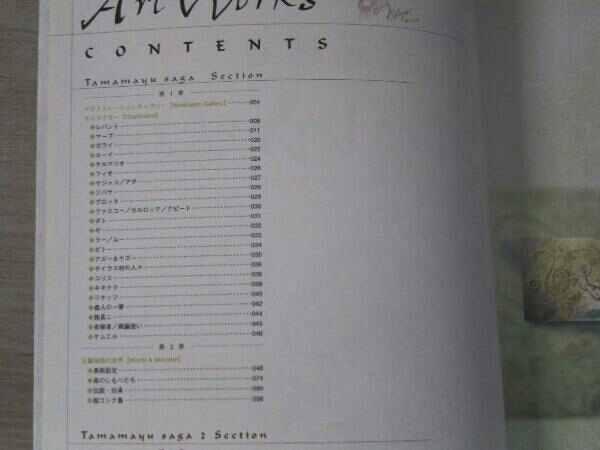 Art Works
CONTENTS
Tamamayu saga Section
第1章
イラストレーションギャラリー【Illustration Gallery】 004
キャラクター【Characters】
◆レバント 008
◆マーブ 011
◆ガライ 020
◆ユーイ 022
◆ケルマリオ 024
◆フィオ 026
◆ヤジャコ/アダ 027
◆ジバラ 028
◆グロッタ 029
◆ヴァスコー/カルロッテ/クピード 030
◆ボト 031
◆ギ 032
◆ラー/ムー 033
◆ビトー 034
◆アズー&ヤズー 035
◆サイラス村の人々 036
◆コリス 038
◆キキナク 039
◆リケッツ 040
◆森人の一家 042
◆族長ニ 044
◆密猟者/黒繭使い 045
◆ケムエル 046
第2章
玉繭物語の世界【World & Monster】
◆美術設定 048
◆森のしもべたち 074
◆伝説・伝承 090
◆絵コンテ集 098
Tamamayu saga 2 Section